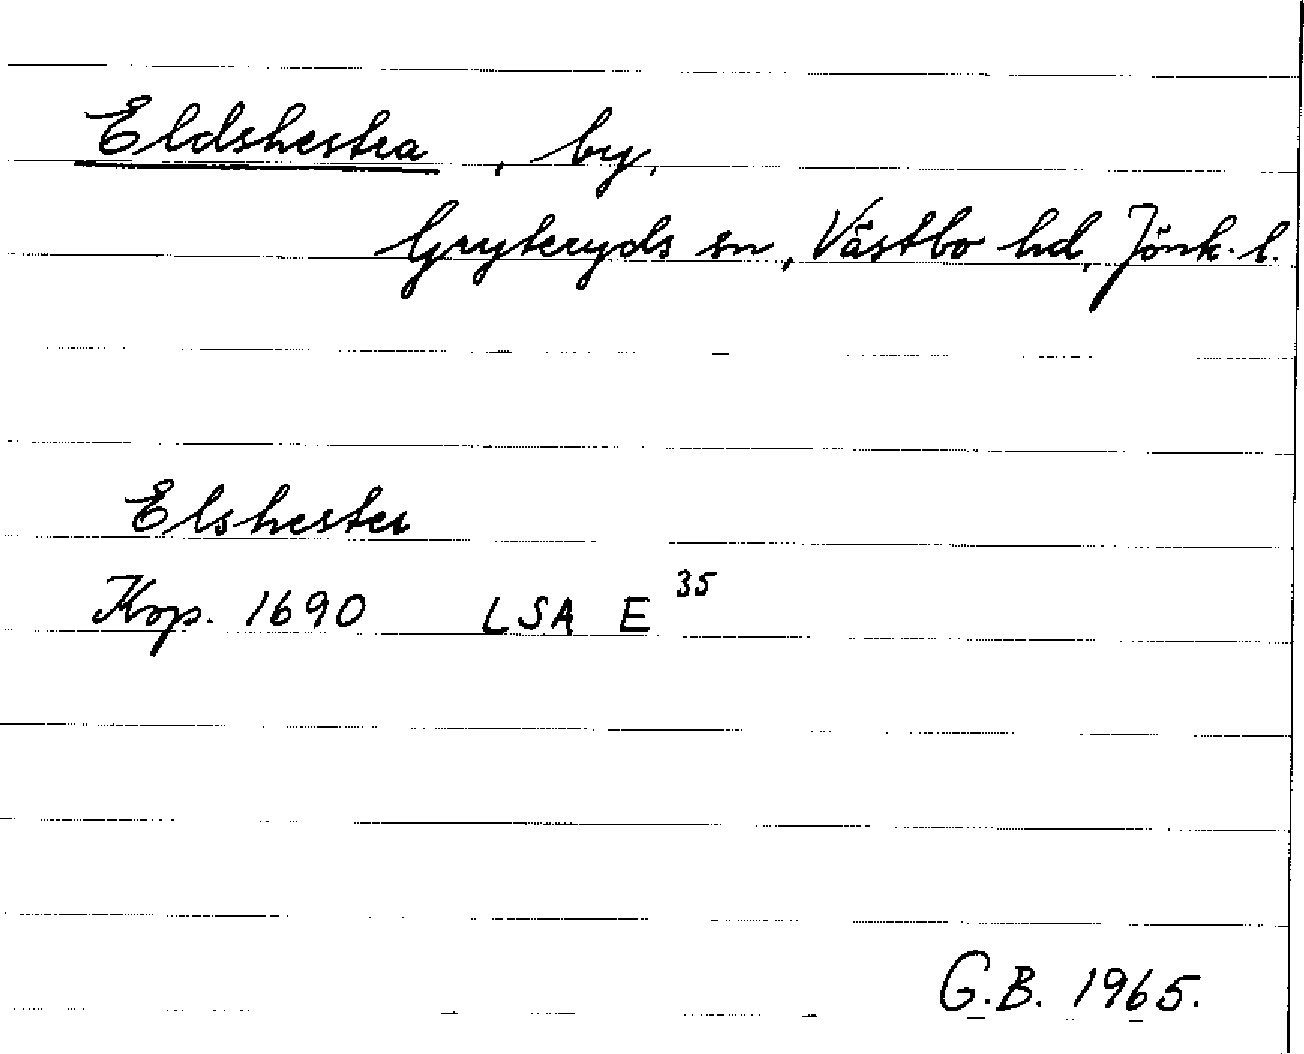 Eldshestra, by,
Gryteryds sn, Västbo hd, Jönk. l.
Elshester
Kop. 1690 LSA E 35
G.B. 1965.